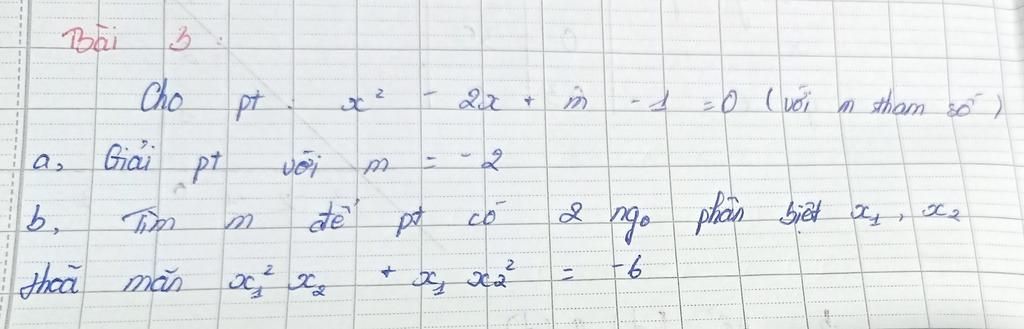 Bài 3:
Cho pt: x² - 2x + m - 1 = 0 (với m tham số)
a, Giải pt với m = -2
b, Tìm m để pt có 2 ngo phân biệt x₁, x₂
thoã mãn x₁² x₂ + x₁ x₂² = -6